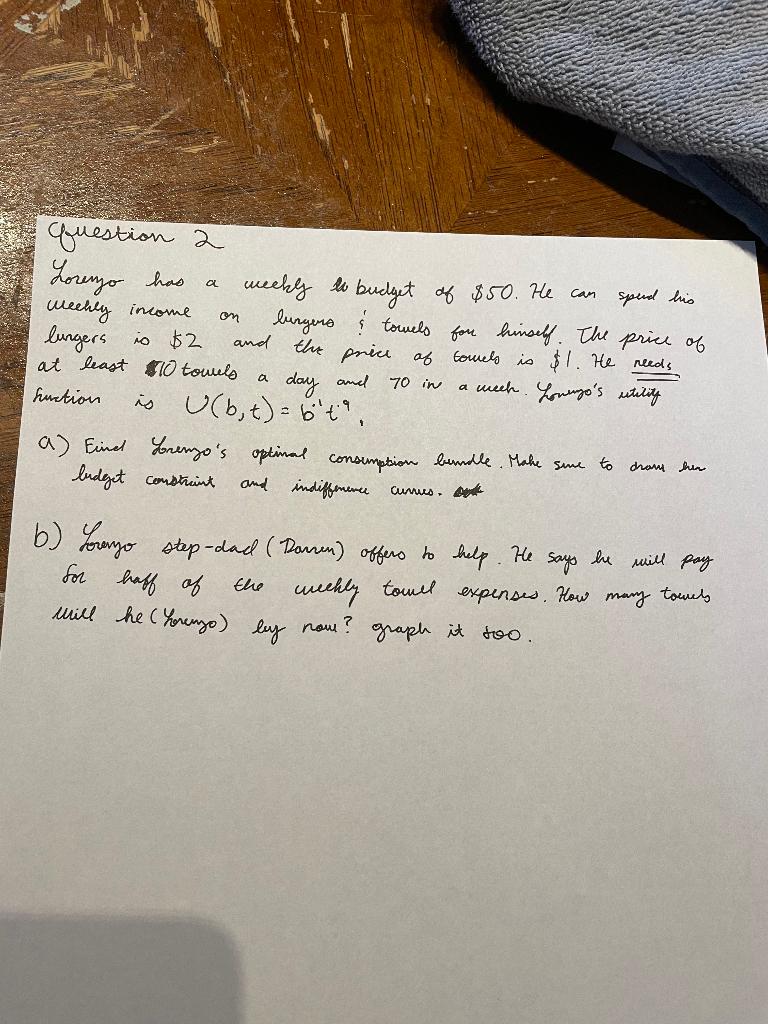 Question 2
Lorenzo has a weekly budget of $50. He can spend his
weekly income on burgers & towels for himself. The price of
burgers is $2 and the price of towels is $1. He needs
at least 10 towels a day and 70 in a week. Lorenzo's utility
function is U(b,t) = b^.1 t^.9.
a) Find Lorenzo's optimal consumption bundle. Make sure to draw her
budget constraint and indifference curves.
b) Lorenzo step-dad (Darren) offers to help. He says he will pay
for half of the weekly towel expenses. How many towels
will he (Lorenzo) buy now? graph it too.